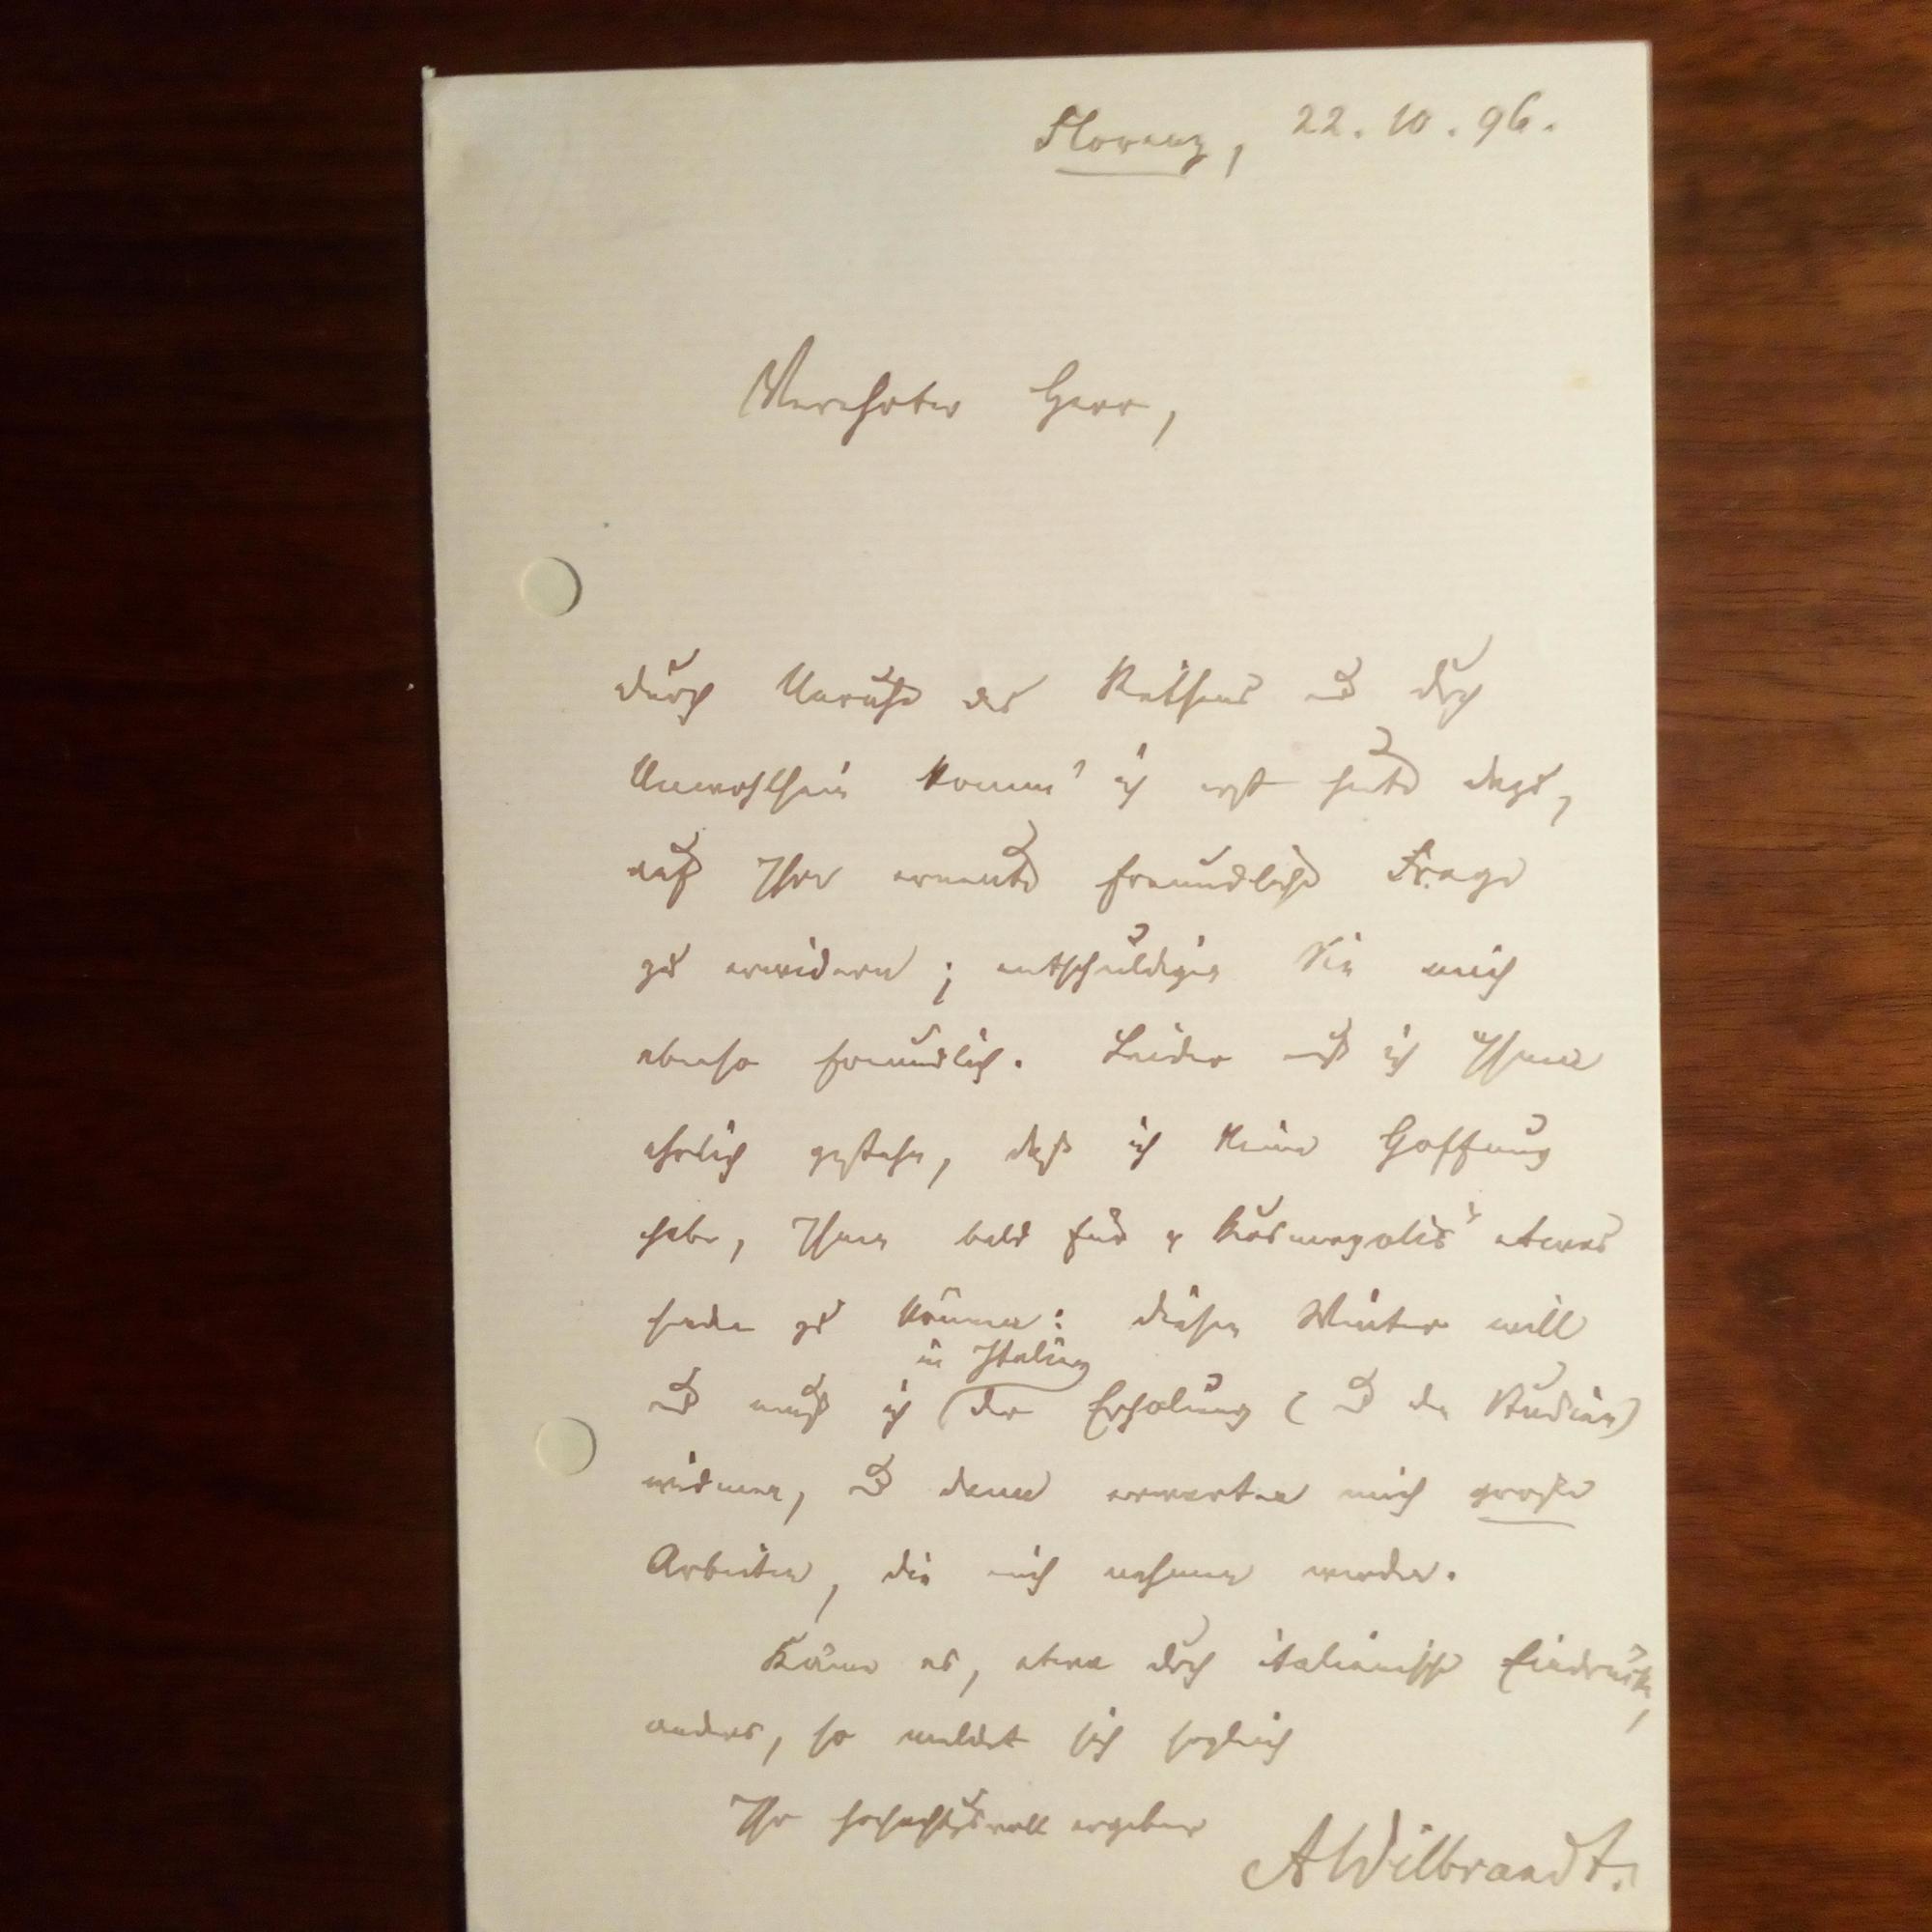 Florenz, 22. 10. 96.
Verehrter Herr,
durch Unruhe des Reisens und durch
Unwohlsein komm' ich erst heute dazu,
auf Ihre erneute freundliche Frage
zu erwidern; entschuldigen Sie mich
ebenso freundlich. Leider muß ich Ihnen
ehrlich gestehn, daß ich keine Hoffnung
habe, Ihnen bald für „Kosmopolis“ etwas
senden zu können: diesen Winter will
in Italien
und muß ich der Erholung (und den Studien)
widmen, und dann erwarten mich große
Arbeiten, die mich nehmen werden.
Käme es, etwa durch italienische Eindrücke,
anders, so meldet sich sogleich
Ihr hochachtungsvoll ergebener
AWilbrandt.